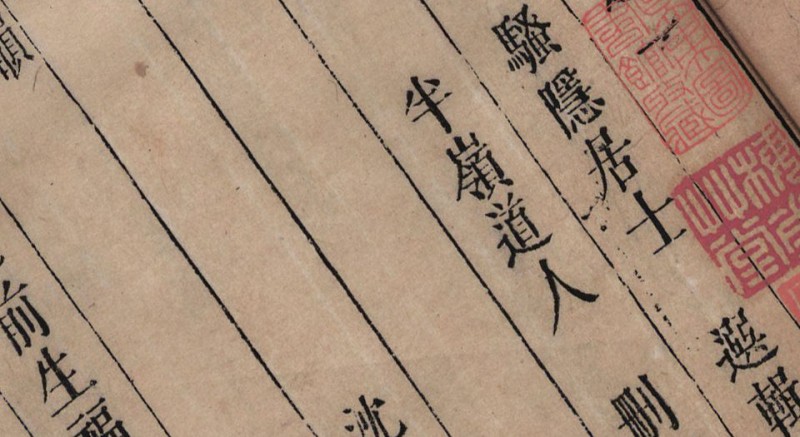 騷隱居士 選輯
半嶺道人 刪
沈
前生福